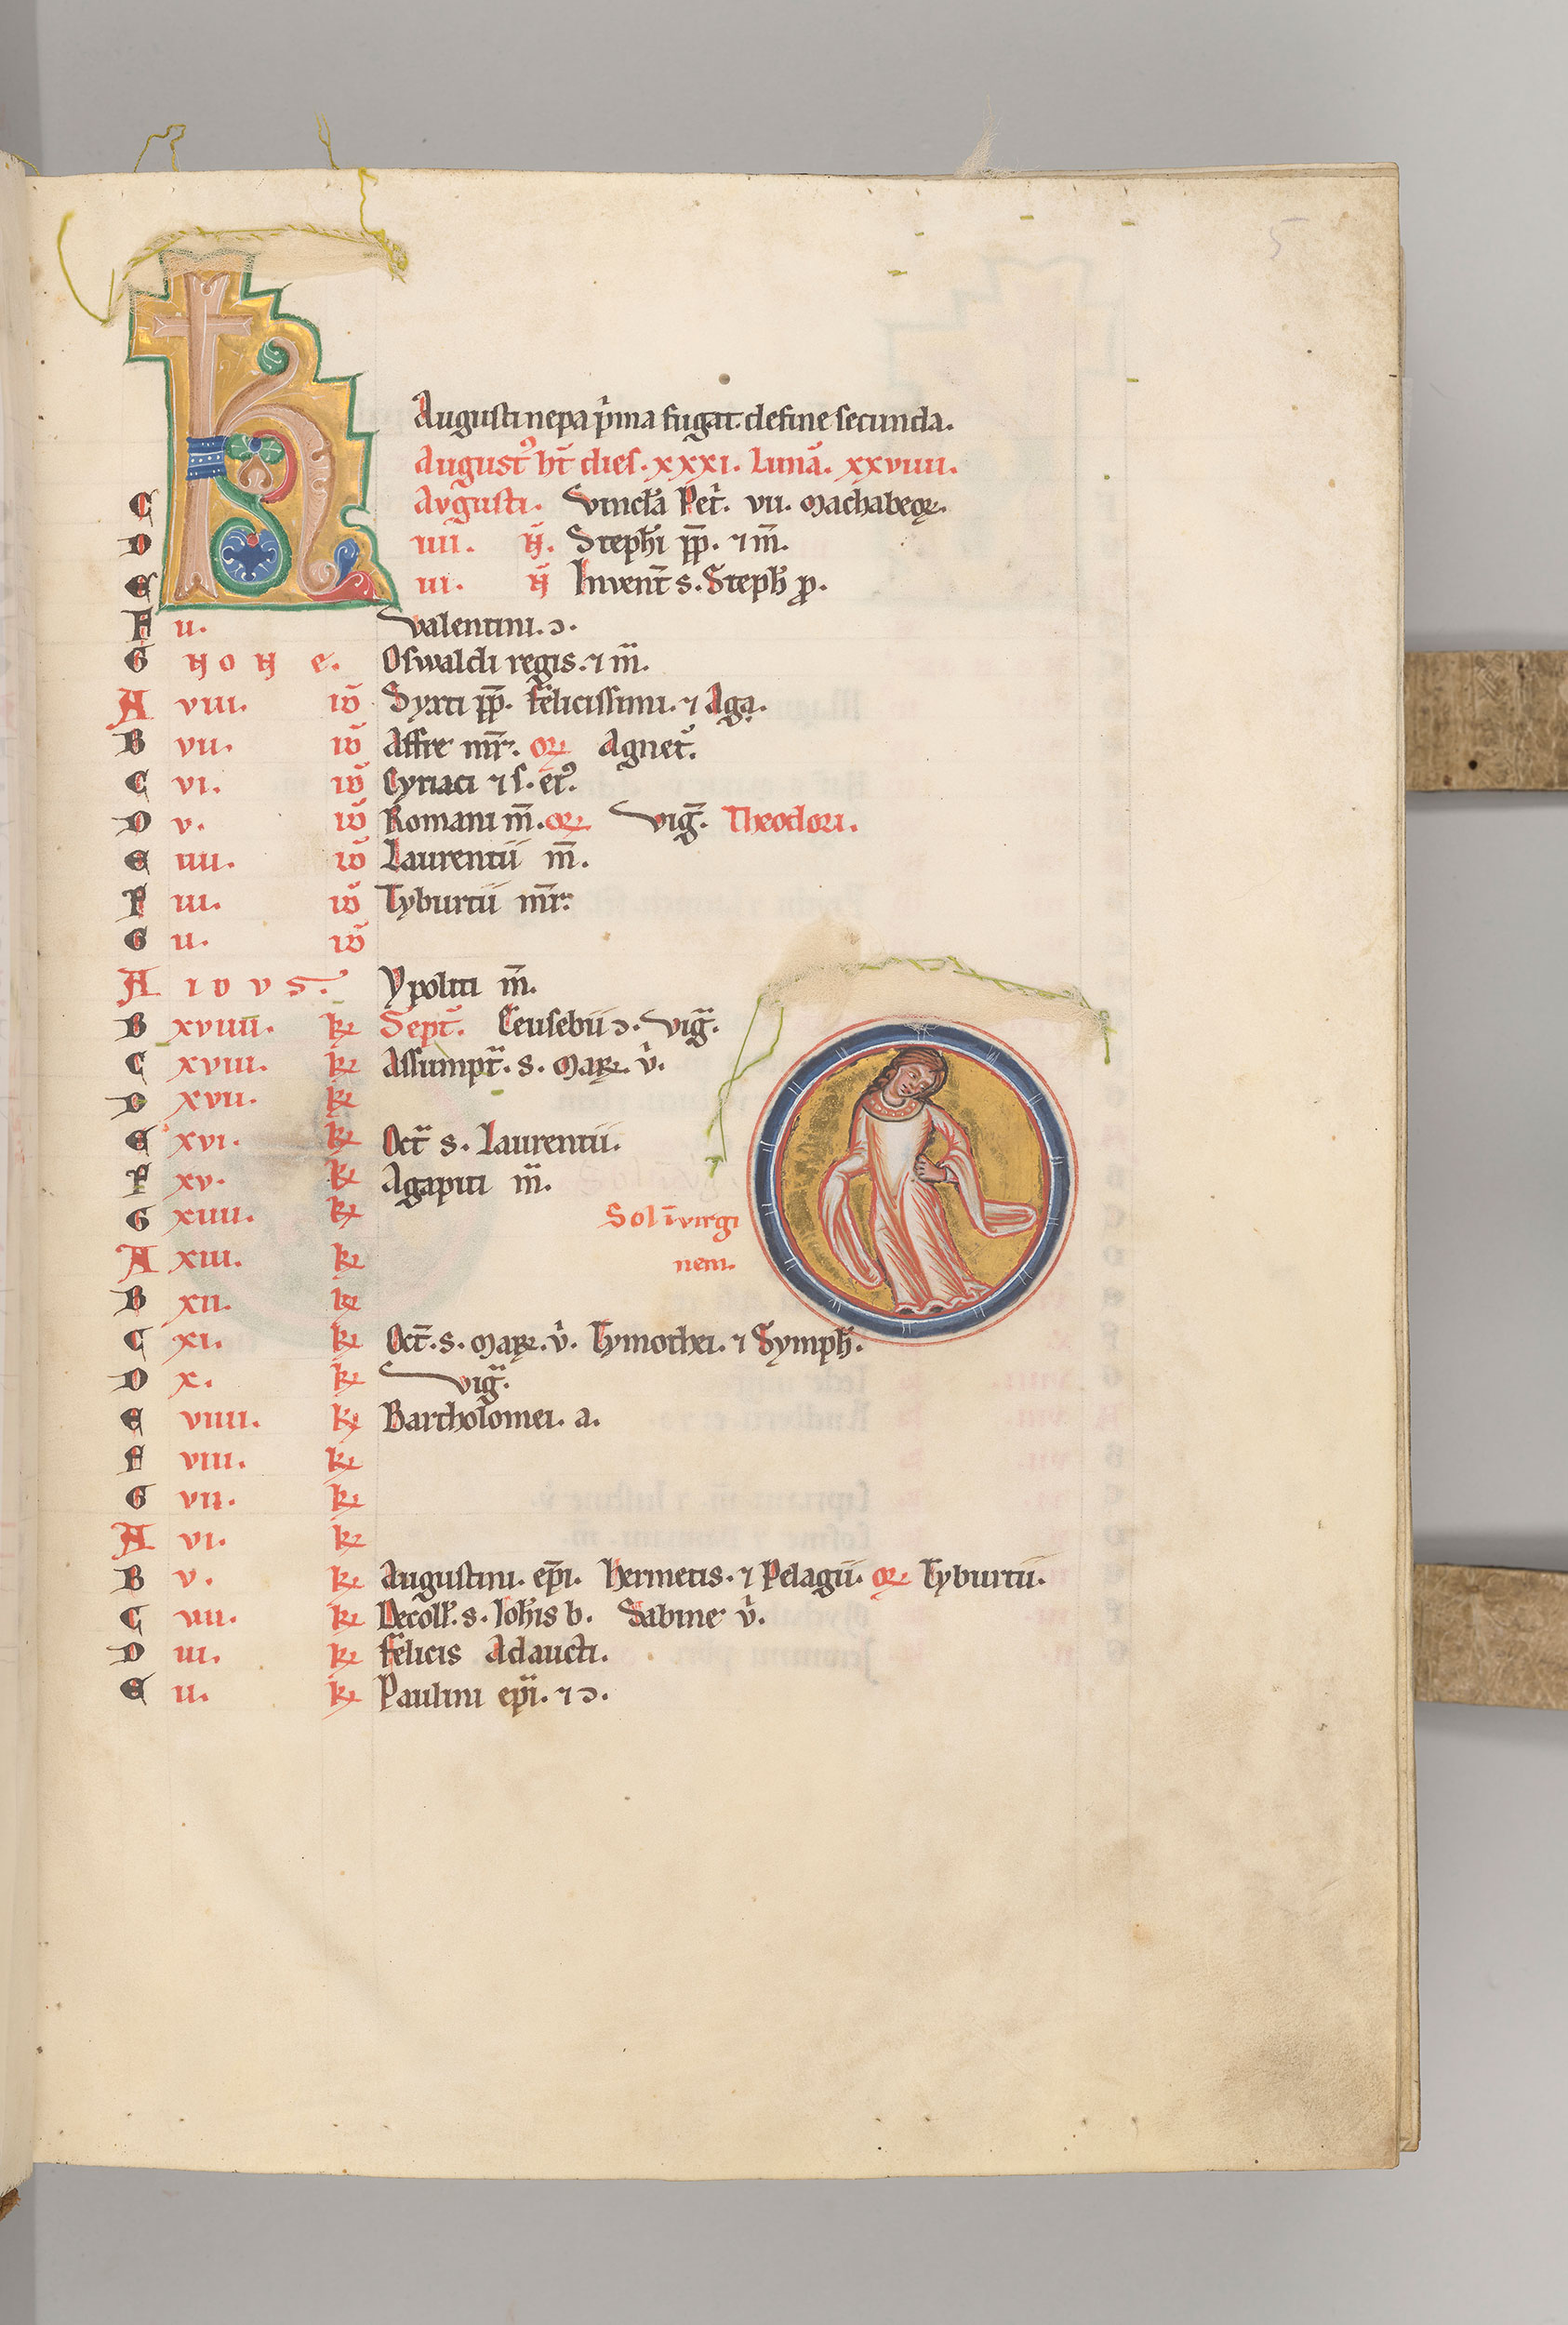 5
Augusti nepa p̍ma fugat. de fine secunda.
August᾽ ht̄ dies. xxxi. Lunā. xxviiii.
C Avgusti. Vincl̄a Pet̍. vii. Machabeoꝝ.
D iiii. N̄. Steph̄i pp̄. ⁊ m̄.
E iii. N̄ Invent̄ s. Steph̄ ꝓ.
F ii. Valentini. ↄ.
G NONe. Oswaldi regis. ⁊ m̄.
A viii. iđ Syxti pp̄. felicissimi. ⁊ Aga.
B vii. iđ Affre mr̄. oꝝ Agnet᾽.
C vi. iđ Cyriaci ⁊ s. ei᾽.
D v. iđ Romani m̄. oꝝ viḡ. Theodori.
E iiii. iđ Laurentii m̄.
F iii. iđ Tyburtii mr̄.
G ii. iđ
A IDVS. Ypoliti m̄.
B xviiii. kꝉ Sept᾽. Eeusebii ↄ. viḡ.
C xviii. kꝉ Assumpt̄. s. Maꝝ. v̍.
D xvii. kꝉ
E xvi. kꝉ Oct̄ s. Laurentii.
F xv. kꝉ Agapiti m̄.
G xiiii. kꝉ Sol ī virgi
A xiii. kꝉ nem.
B xii. kꝉ
C xi. kꝉ Oct̄. s. Maꝝ. v̍. Tymothei. ⁊ Symph̄.
D x. kꝉ viḡ.
E viiii. kꝉ Bartholomei. a.
F viii. kꝉ
G vii. kꝉ
A vi. kꝉ
B v. kꝉ Augustini. ep̄i. hermetis. ⁊ Pelagii. oꝝ Tyburtii.
C iiii. kꝉ Decoll̄. s. Ioh̄is b. Sabine v̍.
D iii. kꝉ felicis Adaucti.
E ii. kꝉ Paulini ep̄i. ⁊ ↄ.